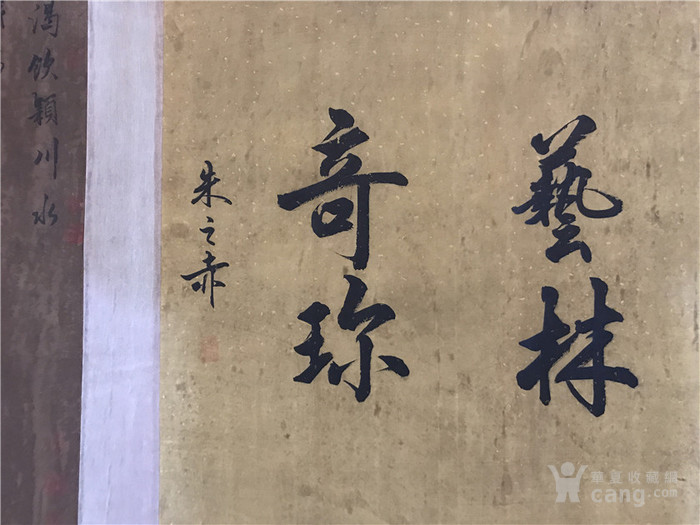 藝林
奇珎
朱之赤
渴飲潁川水
華夏收藏網
cang.com